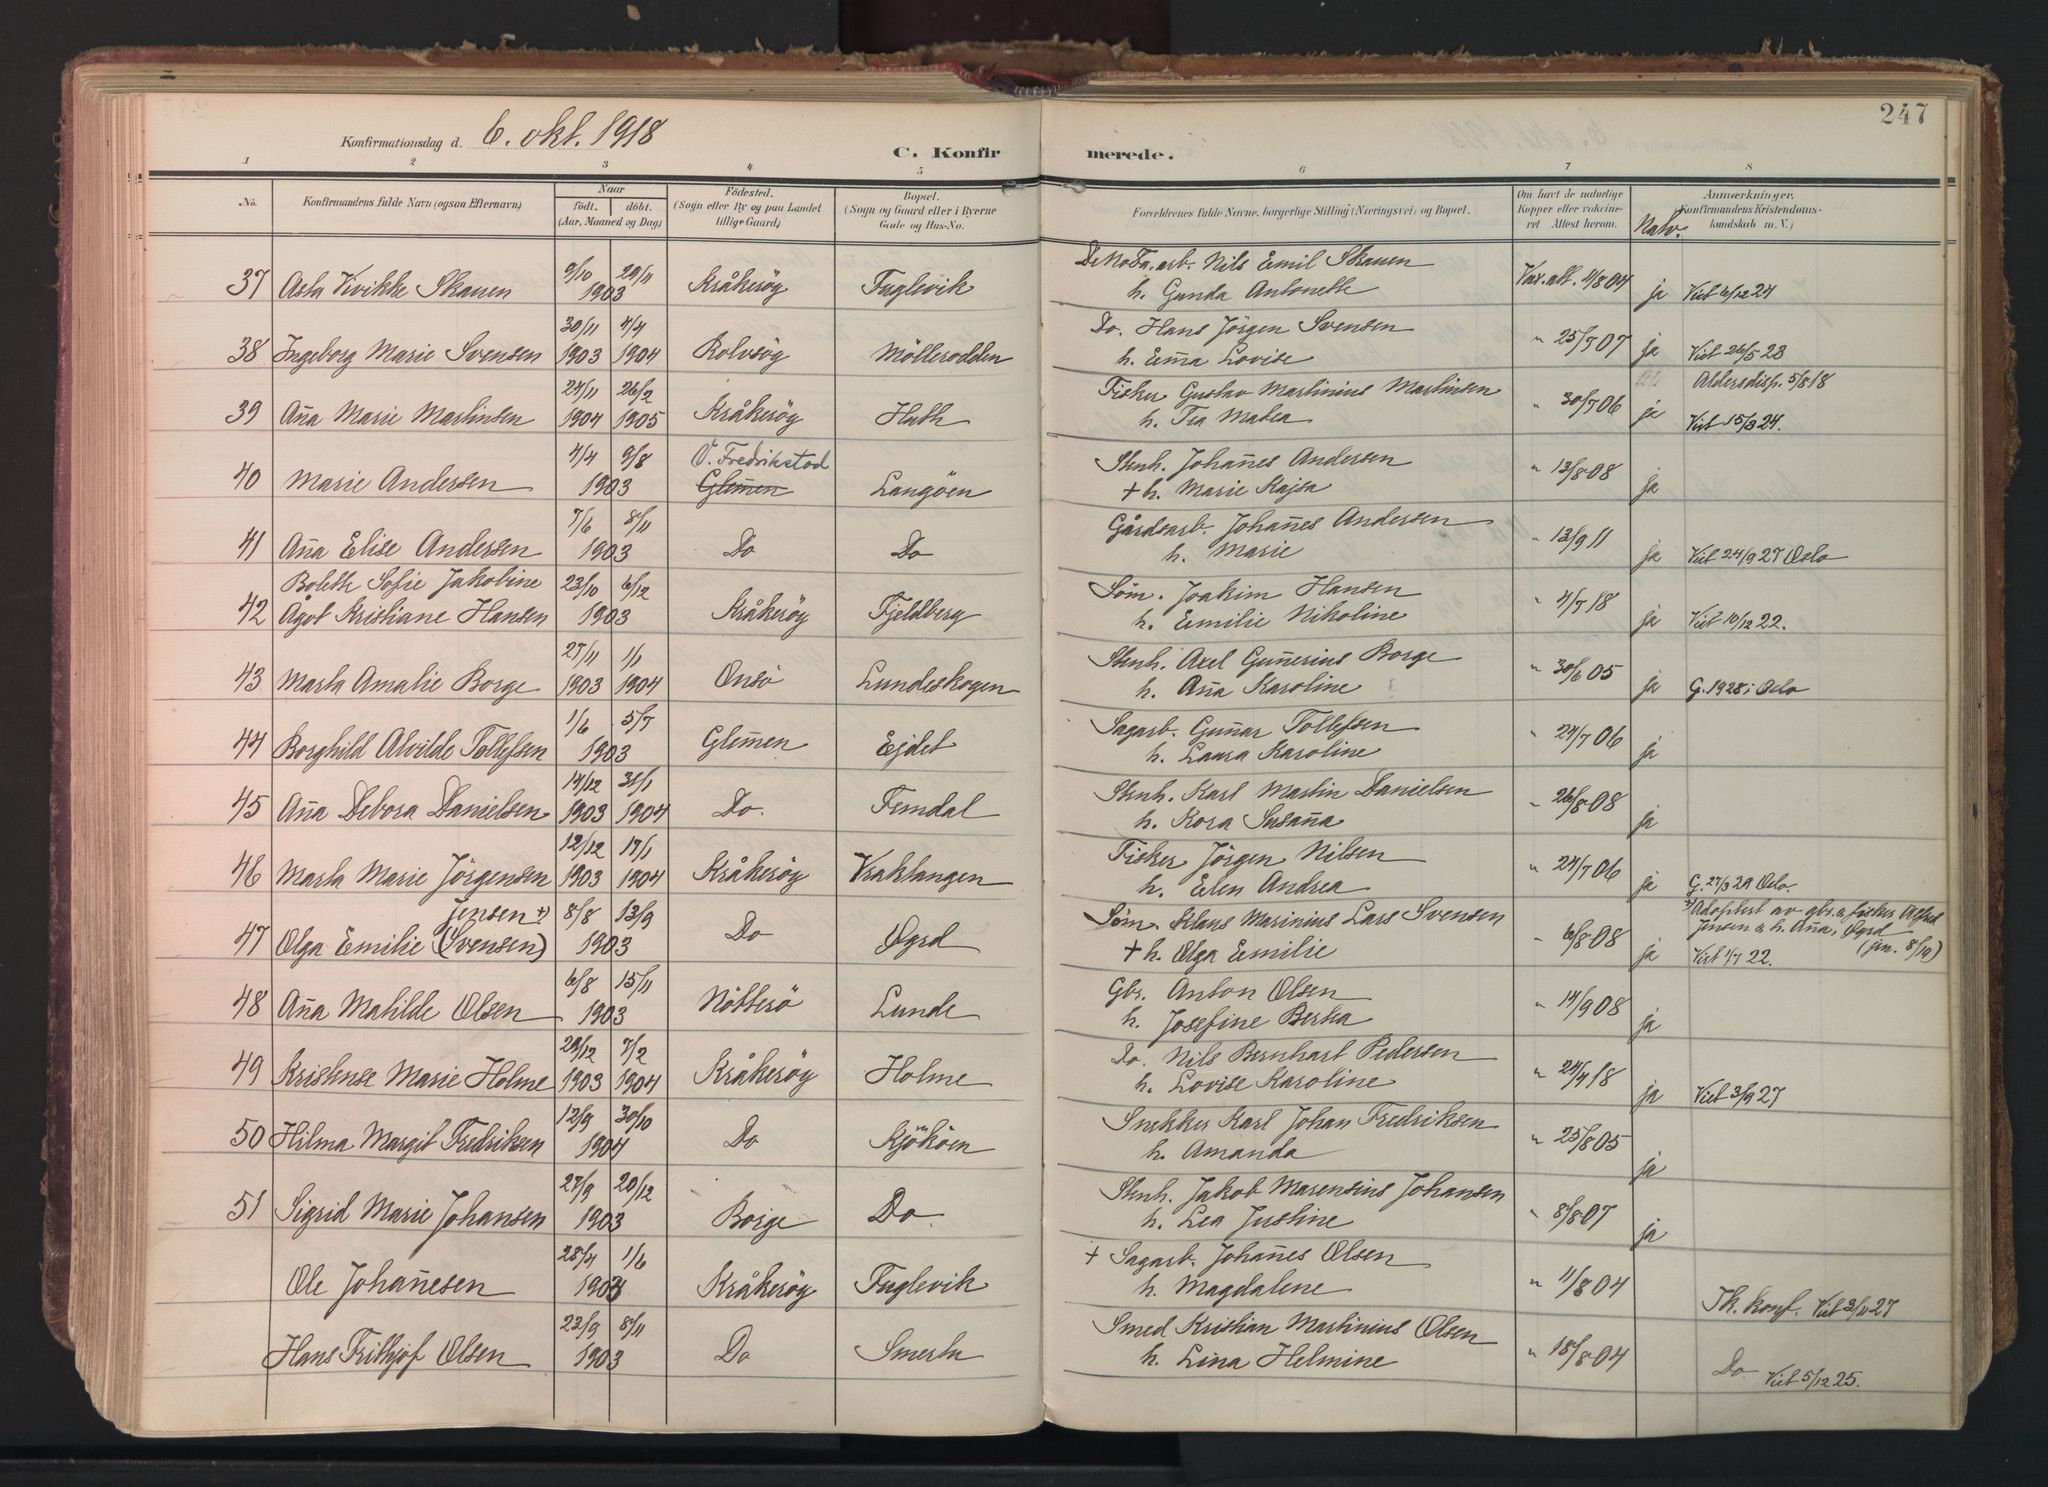 247
Konfirmationsdag d. 6. okt. 1918
C. Konfirmerede.
1 2 3 4 5 6 7 8
No. Konfirmandens fulde Navn (ogsaa Efternavn) Naar født. døbt. (Aar, Maaned og Dag) Fødested. (Sogn eller By og paa Landet tillige Gaard) Bopæl. (Sogn og Gaard eller i Byerne Gade og Hus-No. Forældrenes fulde Navne, borgerlige Stilling (Næringsvei) og Bopæl. Om havt de naturlige Kopper eller vakcineret Attest herom. Natv. Anmærkninger. (Konfirmandens Kristendomskundskab m. V.)
37 Asta Vivikke Skauen 9/10 29/11 1903 Kråkeröy Fuglevik DeNoFa. arb. Nils Emil Skauen
h. Gunda Antonette Vax. att. 11/8 04 ja Viet 6/12 24
38 Ingeborg Marie Svensen 30/11 1903 4/4 1904 Rolvsöy Möllerodden Do. Hans Jörgen Svensen
h. Em̄a Lovise " 25/7 07 ja Viet 26/5 23
39 An̄a Marie Martinsen 24/11 1904 26/2 1905 Kråkeröy Huth Fisker Gustav Martinius Martinsen
h. Tea Matea " 30/7 06 ja Aldersdisp. 5/8 18
Viet 15/3 24.
40 Marie Andersen 4/4 9/8 1903 V. Fredrikstad
Glem̄en Langöen Stenh. Johan̄es Andersen
+ h. Marie Kajsa " 13/8 08 ja
41 An̄a Elise Andersen 7/6 8/11 1903 Do Do Gårdsarb. Johan̄es Andersen
h. Marie " 13/9 11 ja Viet 24/9 27 Oslo
Bolette Sofie Jakobine
42 Ågot Kristiane Hansen 23/10 6/12 1903 Kråkeröy Fjeldberg Söm. Joakim Hansen
h. Emilie Nikoline " 4/7 18 ja Viet 10/12 22.
43 Marta Amalie Borge 27/11 1903 1/1 1904 Onsö Lundeskogen Stenh. Axel Gun̄erius Borge
h. An̄a Karoline " 30/6 05 ja G. 1928 i Oslo
44 Borghild Alvilde Tollefsen 1/6 5/7 1903 Glem̄en Ejdet Sagarb. Gun̄ar Tollefsen
h. Laura Karoline " 24/7 06 ja
45 An̄a Debora Danielsen 14/12 1903 31/1 1904 Do. Femdal Stenh. Karl Martin Danielsen
h. Kora Susan̄a " 26/8 08 ja
46 Marta Marie Jörgensen 12/12 1903 17/1 1904 Kråkeröy Vraklangen Fisker Jörgen Nilsen
h. Elen Andrea " 24/7 06 ja G. 27/3 29 Oslo.
Jensen +)
47 Olga Emilie (Svensen) 8/8 13/9 1903 Do Øgrd Söm. Klaus Marinius Lars Svensen
+ h. Olga Emilie " 6/8 08 ja +) Adoptert av gbr. & fisker Alfred
Jensen & h. An̄a, Øgrd
(jnr. 8/19)
Viet 1/7 22.
48 An̄a Matilde Olsen 6/8 15/11 1903 Nötterö Lunde Gbr. Anton Olsen
h. Josefine Berta " 14/9 08 ja
49 Kristense Marie Holme 29/12 1903 7/2 1904 Kråkeröy Holme Do. Nils Bernhart Pedersen
h. Lovise Karoline " 24/4 18 ja Viet 3/9 27
50 Hilma Margit Fredriksen 12/9 30/10 1904 Do Kjököen Snekker Karl Johan Fredriksen
h. Amanda " 25/8 05 ja
51 Sigrid Marie Johansen 27/9 20/12 1903 Borge Do Stenh. Jakob Marensius Johansen
h. Lea Justine " 8/8 07 ja
Ole Johan̄esen 28/4 1/6 1903 Kråkeröy Fuglevik + Sagarb. Johan̄es Olsen
h. Magdalene " 11/8 04 Tk. konf. Viet 3/11 27
Hans Frithjof Olsen 23/9 8/11 1903 Do Smertu Smed Kristian Martinius Olsen
h. Lina Helmine " 18/8 04 Do. Viet 5/12 25.